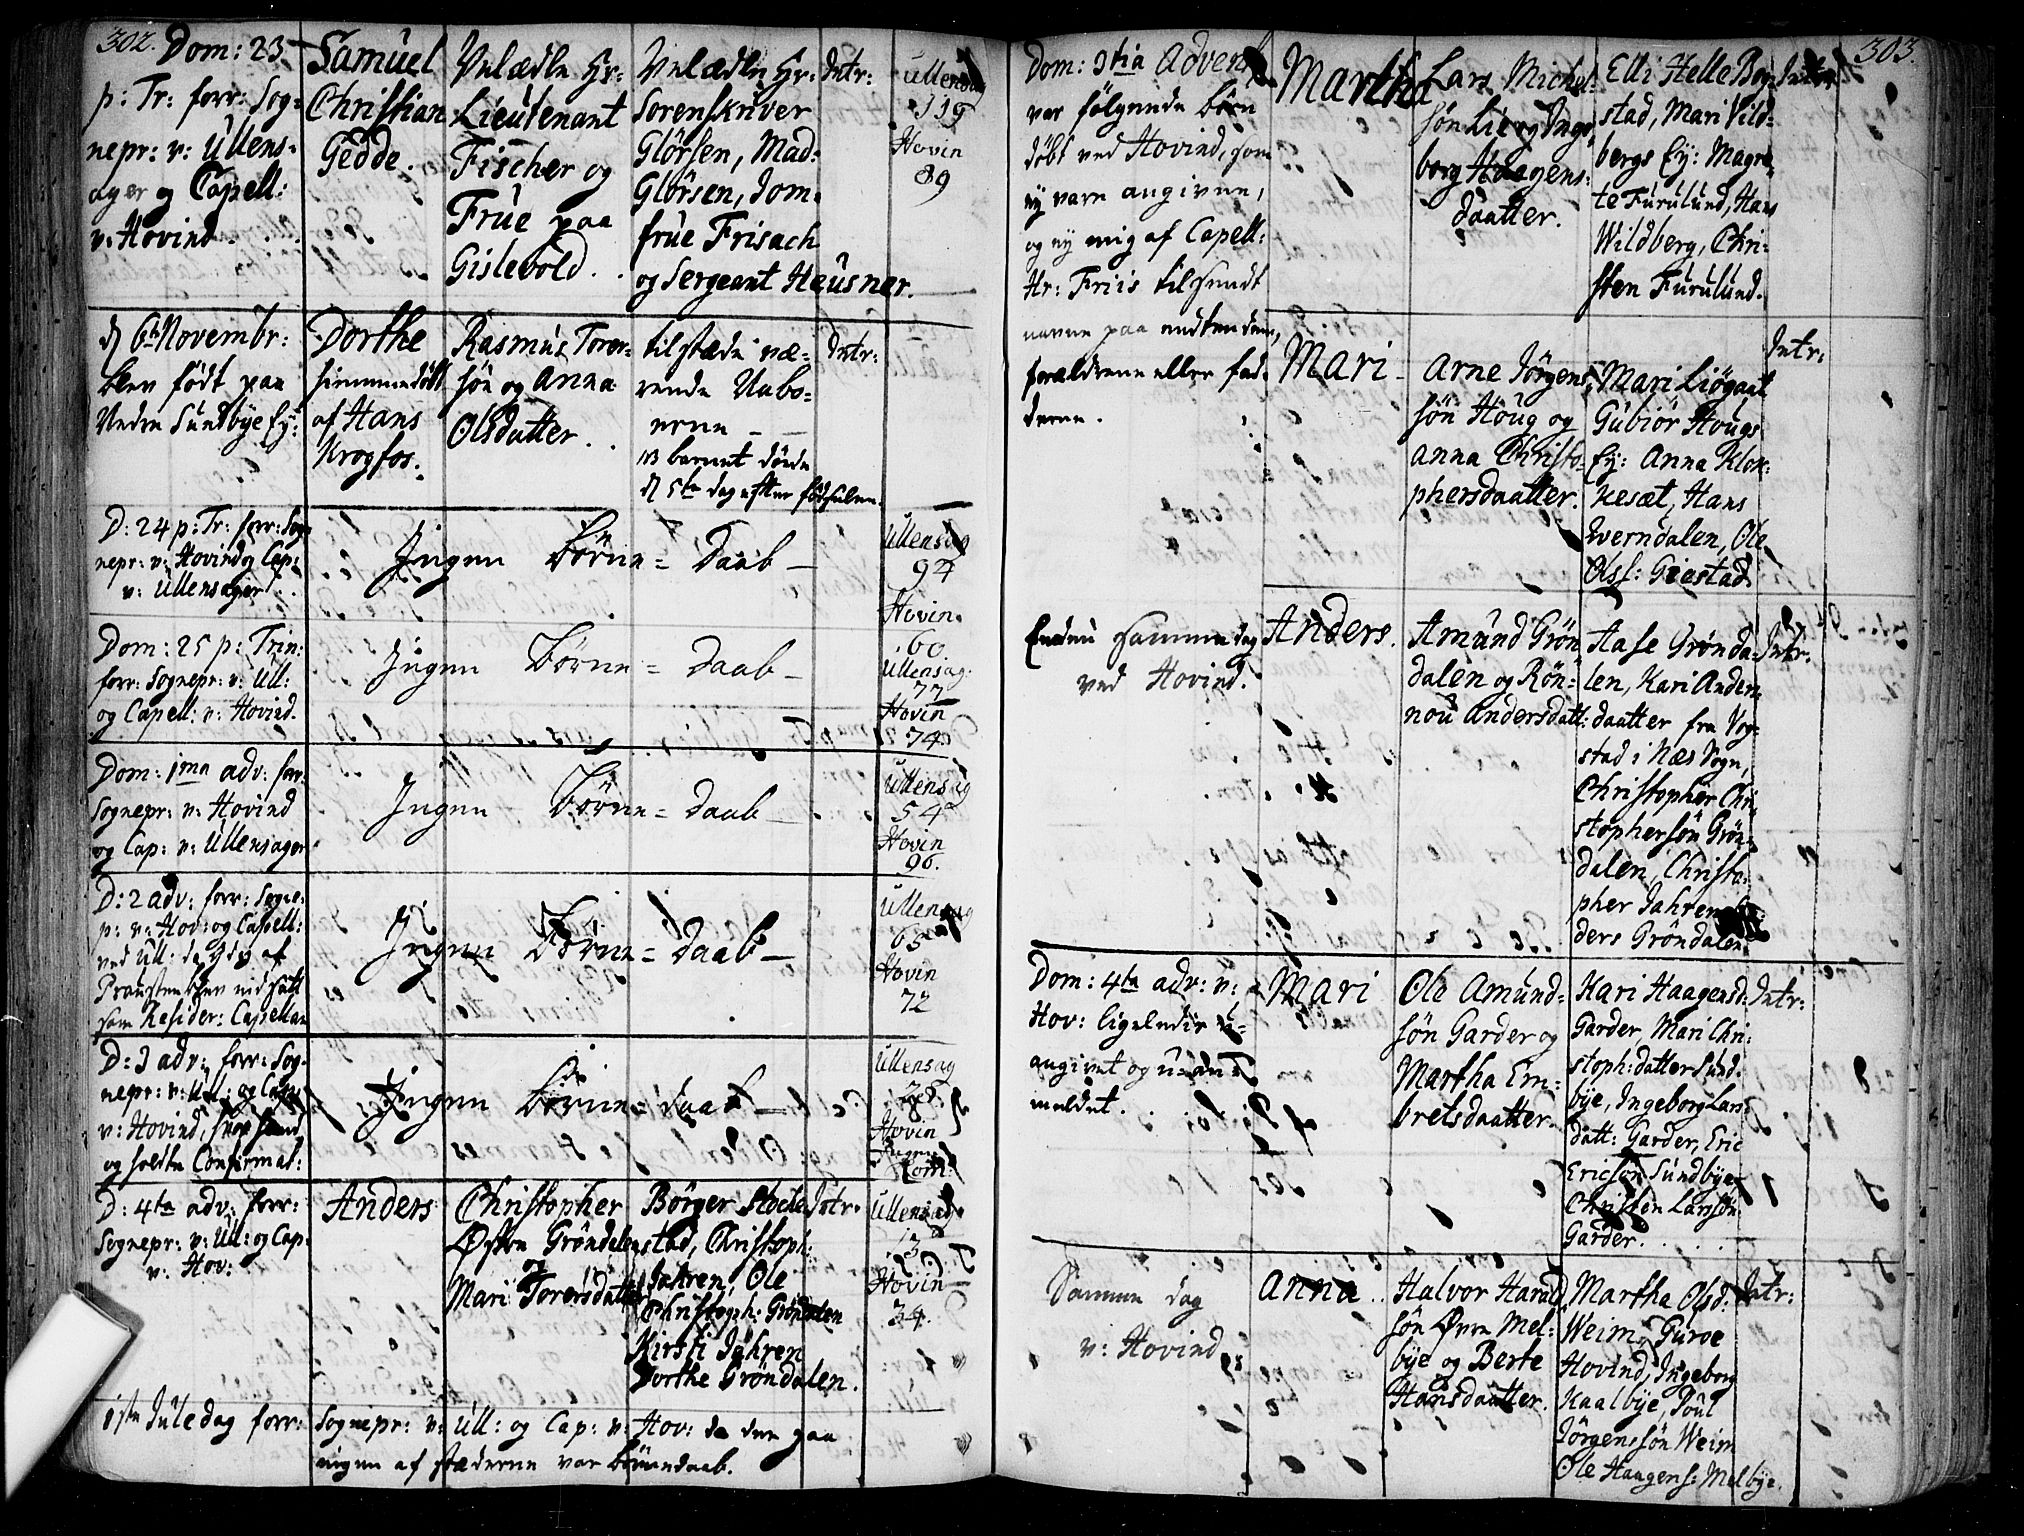 302.
Dom: 23
p: Tr: forr: Sog=
nepr: v: Ullens=
ager og Capell:
v: Hovind
Samuel
Christian
Gedde.
Velædle Hr:
Lieutenant
Fischer og
Frue paa
Gislevold.
Velædle Hr:
Sorenskriver
Glörsen, Mad:
Glörsen, Jom=
frue Frisach
og Sergeant Heusner.
Intr:
Ullensag
119
Hovin
89
d 6te Novembr:
blev født paa
Nedre Sundbye Ey:
Dorthe
himmedøbt
af Hans
Krogfos.
Rasmus Torer=
søn og Anna
Olsdatter.
tilstæde væ=
rende Nabo=
erne
NB barnet døde
d 5te dag efter fødselen.
Intr:
D: 24 p: Tr: forr: Sog
nepr: v: Hovind og Cap:
v: Ullensager
Ingen Börne = Daab
Ullensag
94
Hovin
60
Dom: 25 p: Trin:
forr: Sognepr: v: Ull:
og Capell: v: Hovind.
Ingen Börne = Daab
Ullensag.
77
Hovin
74
Dom: 1ma adv: forr:
Sognepr: v: Hovind
og Cap: v: Ullensager
Ingen Börne = Daab
Ullensag
54
Hovin
96.
D: 2 adv: forr: Sogne=
p: v: Hov: og Capell:
ved Ull: da hand af
Prousten blev indsatt
som Resider: Capellan
Ingen Börne = Daab
Ullensag
65
Hovin
72
D: 3 adv: forr: Sog=
nepr: v: Ull: og Cap:
v: Hovind,
og holdte Confirmat:
Ingen Börne = Daab
Ullensag
28
Hovin
Ingen
Com:
D: 4ta adv: forr:
Sognepr: v: Ull: og Cap:
v: Hov:
Anders
Christopher
Østre Gröndalen
og
Mari Torersdatter
Börger Stocke
stad, Christoph:
Jahren, Ole
Christoph: Gröndalen
Kirsti Jahren
Dorthe Gröndalen.
Intr.
Ullensag
13
Hovin
34.
1ste Juledag forr: Sognepr: v: Ull: og Cap: v: Hov: da der paa
ingen af stæderne var börnedaab.
303.
Dom: 3tia Advent
var følgende börn
döbt ved Hovind, som
ey vare angivne,
og ey mig af Capell:
Hr: Friis tilsendt
navne paa enten dem,
forældrene eller fad=
derne.
Martha
Lars Michel=
søn Lie og Inge=
borg Haagens=
daatter.
Elli Helle Bog=
stad, Mari Vild=
bergs Ey: Magre=
te Furulund, Hans
Wildberg, Chri=
sten Furulund.
Mari
Arne Jörgen=
søn Houg og
Anna Christo=
phersdaatter.
Mari Liögaat
Gubiör Hougs
Ey: Anna Klok=
kesæt, Hans
Kverndalen, Ole
Olss: Giestad
Intr:
Endnu samme dag
ved Hovind.
Anders.
Amund Grön
dalen og Rön=
nou Andersdatt:
Aase Grönda=
len, Kari Anders
daatter fra Vog=
stad i Næs Sogn,
Christopher Chri=
stophersøn Grön=
dalen, Christo=
pher Jahren,
ders Gröndalen.
Intr:
Dom: 4ta adv: v:
Hov: ligeledis u=
angivet og u-an=
meldet.
Mari
Ole Amund=
søn Garder og
Martha Em=
bretsdaatter.
Kari Haagensd:
Garder, Mari Chri=
stoph: datter Sund=
bye, Ingeborg Lars
datt: Garder, Eric
Ericsøn Sundbye
Christen Larssøn
Garder.
Intr:
Samme dag
v: Hovind
Anna.
Halvor Harald
søn Øvre Mel=
bye og Berte
Hansdaatter.
Martha Olsd:
Weim, Gurve
Hovind, Ingeborg
Kaalbye, Poul
Jörgenssøn Weim
Ole Haagens: Melbye.
Intr: